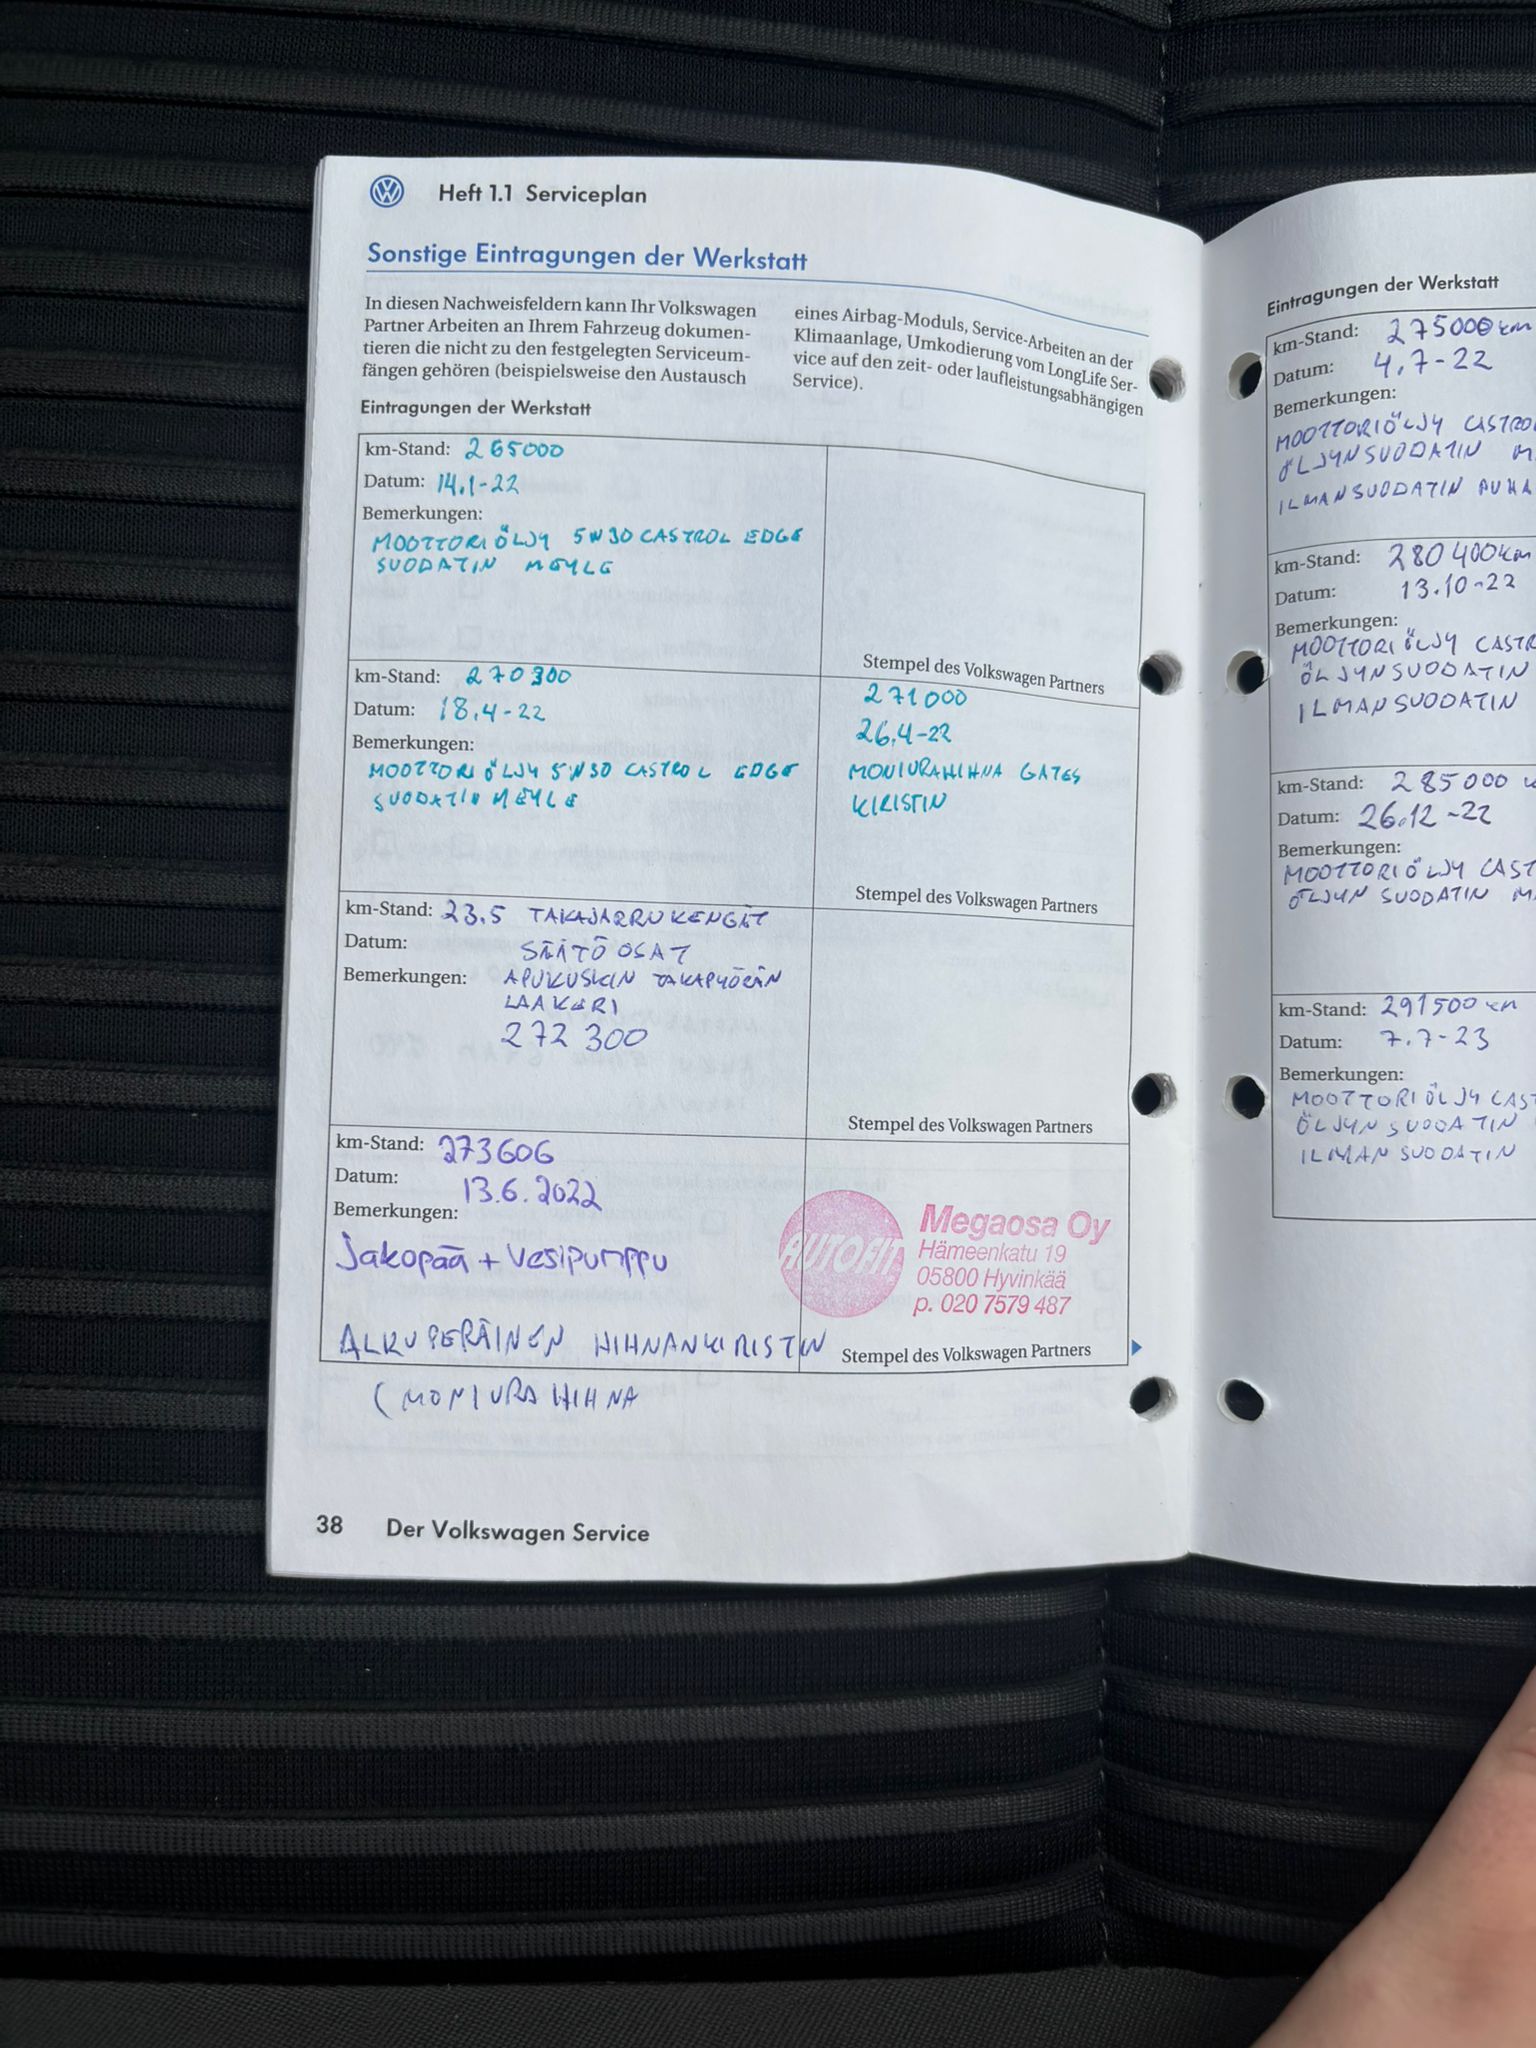 Heft 1.1 Serviceplan
Sonstige Eintragungen der Werkstatt
In diesen Nachweisfeldern kann Ihr Volkswagen
Partner Arbeiten an Ihrem Fahrzeug dokumen-
tieren die nicht zu den festgelegten Serviceum-
fängen gehören (beispielsweise den Austausch
eines Airbag-Moduls, Service-Arbeiten an der
Klimaanlage, Umkodierung vom LongLife Ser-
vice auf den zeit- oder laufleistungsabhängigen
Service).
Eintragungen der Werkstatt
km-Stand: 265000
Datum: 14.1-22
Bemerkungen:
MOOTTORIÖLJY 5W30 CASTROL EDGE
SUODATIN MEYLE
Stempel des Volkswagen Partners
km-Stand: 270300
Datum: 18.4-22
Bemerkungen:
MOOTTORIÖLJY 5W30 CASTROL EDGE
SUODATIN MEYLE
271000
26.4-22
MONIURAHIHNA GATES
KIRISTIN
Stempel des Volkswagen Partners
km-Stand: 23.5 TAKAJARRUKENGÄT
Datum: SÄÄTÖOSAT
Bemerkungen: APUKUSKIN TAKAPYÖRÄN
LAAKERI
272 300
Stempel des Volkswagen Partners
km-Stand: 273606
Datum: 13.6.2022
Bemerkungen:
Jakopää + Vesipumppu
ALKUPERÄINEN HIHNANKIRISTIN
(MONIURAHIHNA
AUTOFIT
Megaosa Oy
Hämeenkatu 19
05800 Hyvinkää
p. 020 7579 487
Stempel des Volkswagen Partners
38 Der Volkswagen Service
Eintragungen der Werkstatt
km-Stand: 275000 km
Datum: 4.7-22
Bemerkungen:
MOOTTORIÖLJY CASTRO
ÖLJYNSUODATIN M
ILMANSUODATIN PUHA
km-Stand: 280400km
Datum: 13.10-22
Bemerkungen:
MOOTTORIÖLJY CASTR
ÖLJYNSUODATIN
ILMANSUODATIN
km-Stand: 285000
Datum: 26.12-22
Bemerkungen:
MOOTTORIÖLJY CAST
ÖLJYN SUODATIN M
km-Stand: 291500 km
Datum: 7.7-23
Bemerkungen:
MOOTTORIÖLJY CAST
ÖLJYN SUODATIN
ILMAN SUODATIN